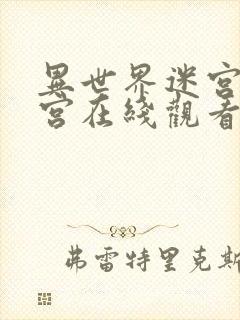 異世界迷宮
宮在綫觀看
弗雷特里克斯